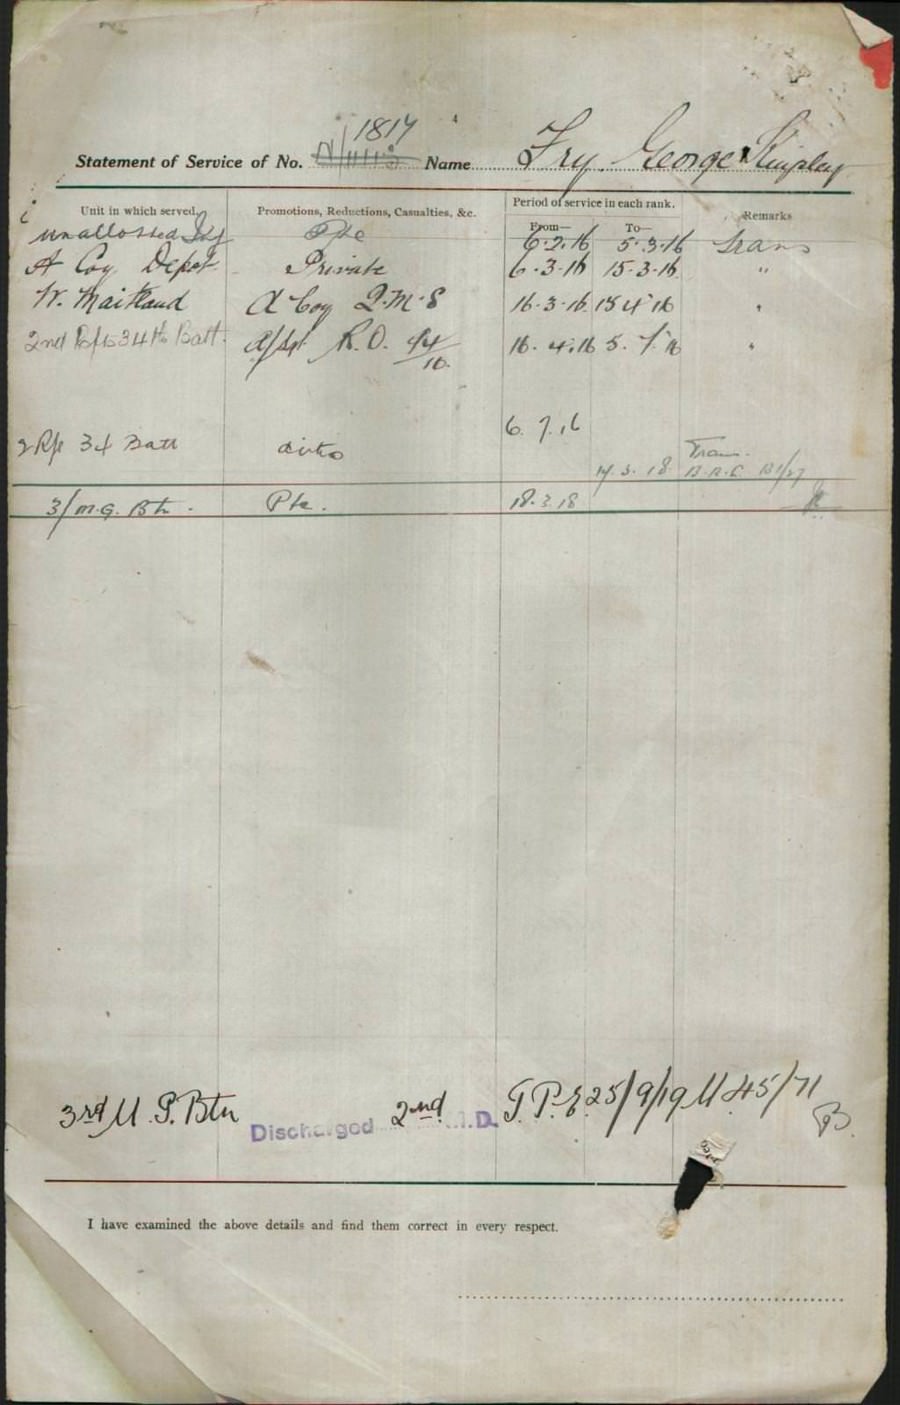 1817
Statement of Service of No. Name Fry George Kingsley
Unit in which served. Promotions, Reductions, Casualties, &c. Period of service in each rank. Remarks
From— To—
unallotted Pte 6.2.16 5.3.16 Trans
A Coy Depot Private 6.3.16 15.3.16 "
W. Maitland A Coy Q.M.S 16.3.16 15 4 16 "
2nd Rfts 34th Batt. A/Sgt R.O. 44/16. 16.4.16 5.7.16 "
6.7.16
2 Rft 34 Batt ditto
Trans.
17.3.18
3/M.G. Btn. Pte. 18.3.18
3rd M.G. Btn Discharged 2nd M.D. T.P.E 25/9/19 M 45/71
I have examined the above details and find them correct in every respect.